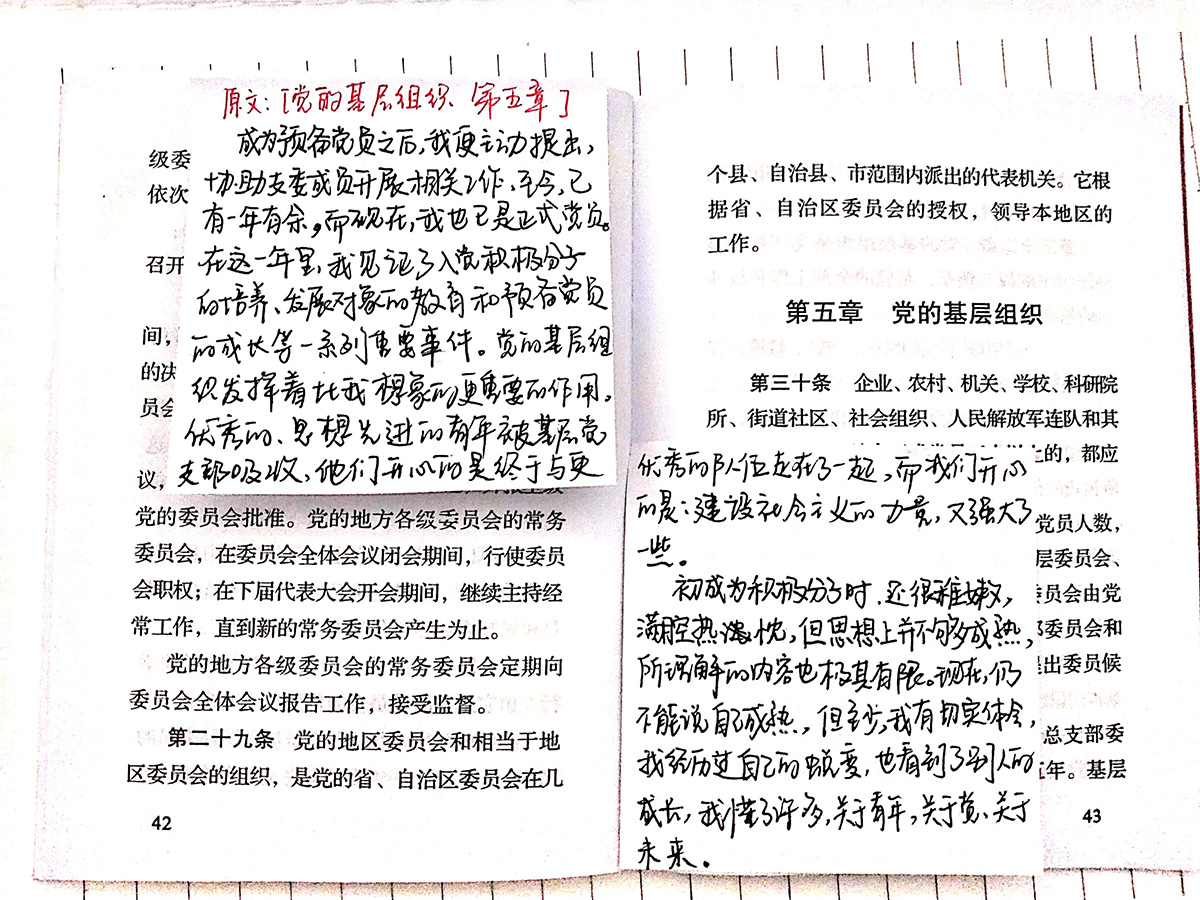 级委
依次
召开
间，
的决
员会
议，
原文：「党的基层组织、第五章」
成为预备党员之后，我便主动提出，
协助支委成员开展相关工作、至今，已
有一年有余。而现在，我也已是正式党员。
在这一年里、我见证了入党积极分子
的培养、发展对象的教育和预备党员
的成长等一系列重要事件。党的基层组
织发挥着比我想象的更重要的作用。
优秀的、思想先进的青年被基层党
支部吸收，他们开心的是终于与更
党的委员会批准。党的地方各级委员会的常务
委员会，在委员会全体会议闭会期间，行使委员
会职权；在下届代表大会开会期间，继续主持经
常工作，直到新的常务委员会产生为止。
党的地方各级委员会的常务委员会定期向
委员会全体会议报告工作，接受监督。
第二十九条 党的地区委员会和相当于地
区委员会的组织，是党的省、自治区委员会在几
42
个县、自治县、市范围内派出的代表机关。它根
据省、自治区委员会的授权，领导本地区的
工作。
第五章 党的基层组织
第三十条 企业、农村、机关、学校、科研院
所、街道社区、社会组织、人民解放军连队和其
上的，都应
党员人数，
层委员会、
委员会由党
部委员会和
提出委员候
总支部委
五年。基层
43
优秀的队伍走在了一起，而我们开心
的是：建设社会主义的力量，又强大了
一些。
初成为积极分子时、还很稚嫩，
满腔热忱，但思想上并不够成熟，
所理解的内容也极其有限。现在，仍
不能说自己成熟，但至少，我有切实体会，
我经历过自己的蜕变，也看到了别人的
成长，我懂了许多，关于青年，关于党、关于
未来。